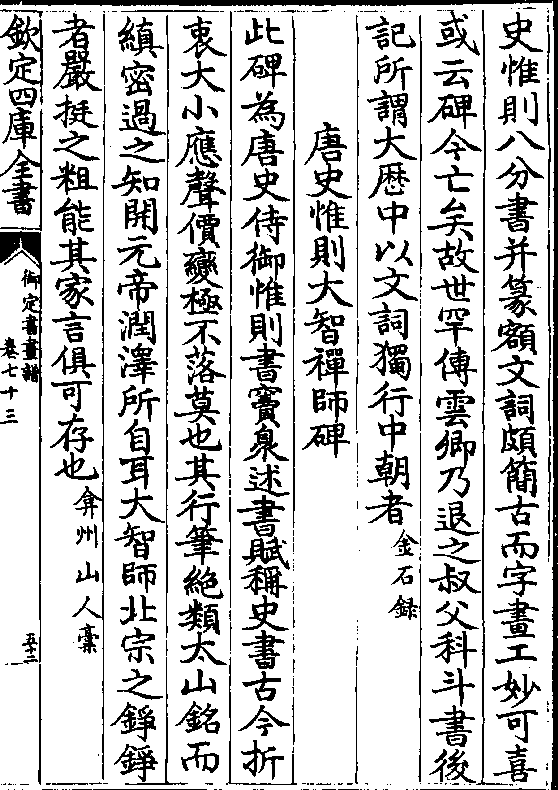 史惟則八分書并篆額文詞頗簡古而字畫工妙可喜
或云碑今亡矣故世罕傳雲卿乃退之叔父科斗書後
記所謂大厯中以文詞獨行中朝者金石録
唐史惟則大智禪師碑
此碑為唐史侍御惟則書竇臮述書賦稱史書古今折
衷大小應聲價變極不落莫也其行筆絶類太山銘而
縝密過之知開元帝潤澤所自耳大智師北宗之錚錚
者嚴挺之粗能其家言俱可存也弇州山人藁
欽定四庫全書
御定書畫譜
卷七十三
五十二